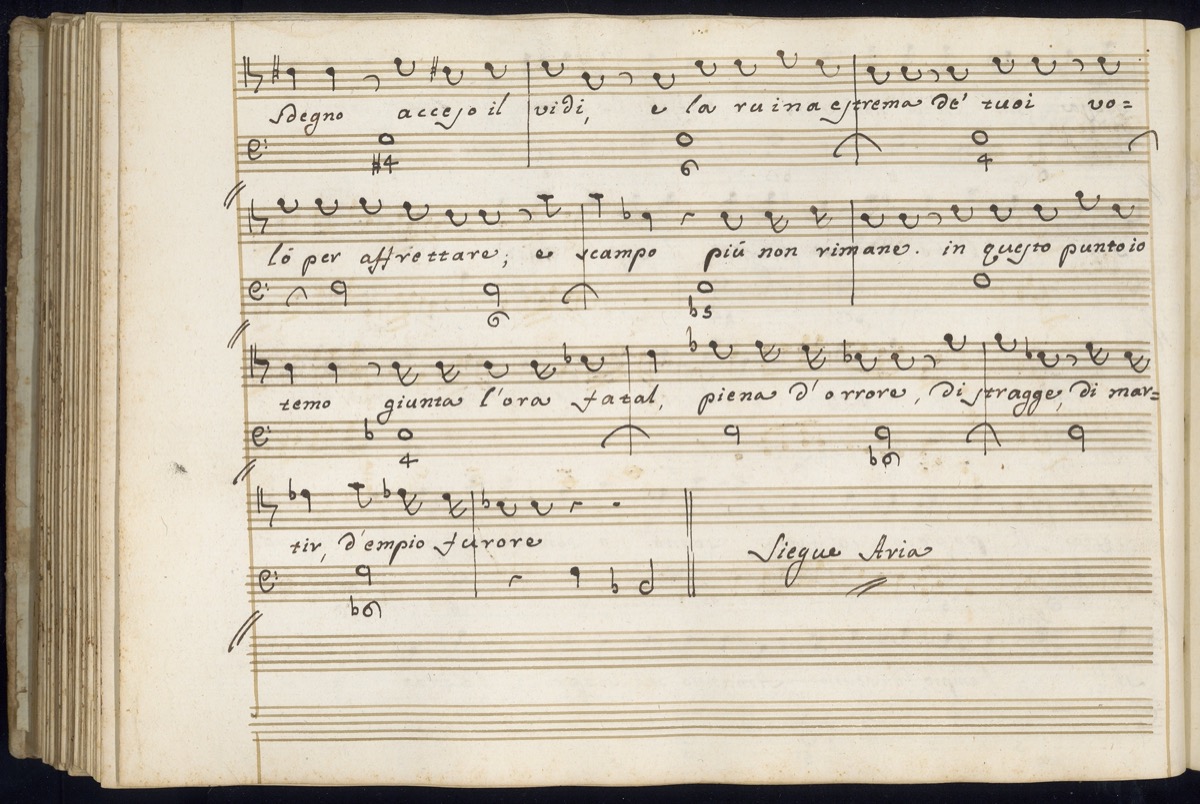 sdegno acceso il vidi, e la ruina estrema de' tuoi vo=
#4 6 4
lò per affrettare; e scampo più non rimane. in questo punto io
6 b5
temo giunta l'ora fatal, piena d'orrore, di stragge, di mar=
4 b6
tir, d'empio furore
Siegue Aria
b6